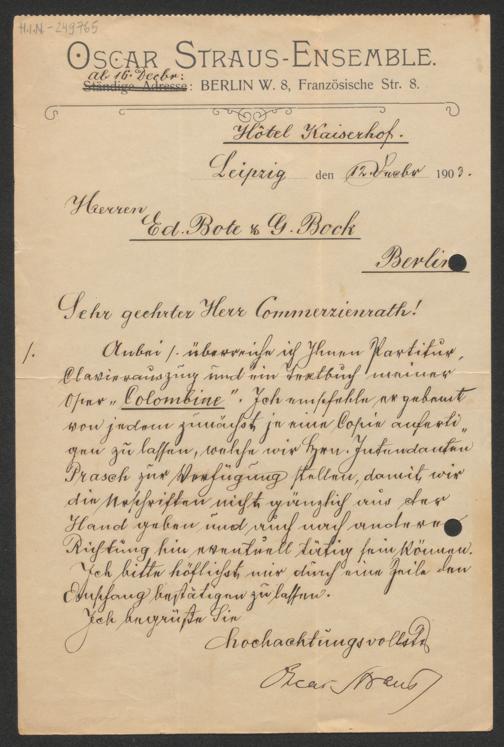 H.I.N.-249765
OSCAR STRAUS-ENSEMBLE.
ab 16. Decbr:
Ständige Adresse: BERLIN W. 8, Französische Str. 8.
Hôtel Kaiserhof.
Leipzig den 12 Decbr 1903.
Herren
Ed. Bote & G. Bock
Berlin
Sehr geehrter Herr Commerzienrath!
/. Anbei /. überreiche ich Ihnen Partitur,
Clavierauszug und ein Textbuch meiner
Oper „Colombine". Ich empfehle ergebenst
von jedem zunächst je eine Copie anferti-
gen zu lassen, welche wir Hrn. Intendanten
Prasch zur Verfügung stellen, damit wir
die Urschriften nicht gänzlich aus der
Hand geben und auch nach anderer
Richtung hin eventuell tätig sein können.
Ich bitte höflichst mir durch eine Zeile den
Empfang bestätigen zu lassen.
Ich begrüße Sie
hochachtungsvollst
Oscar Straus